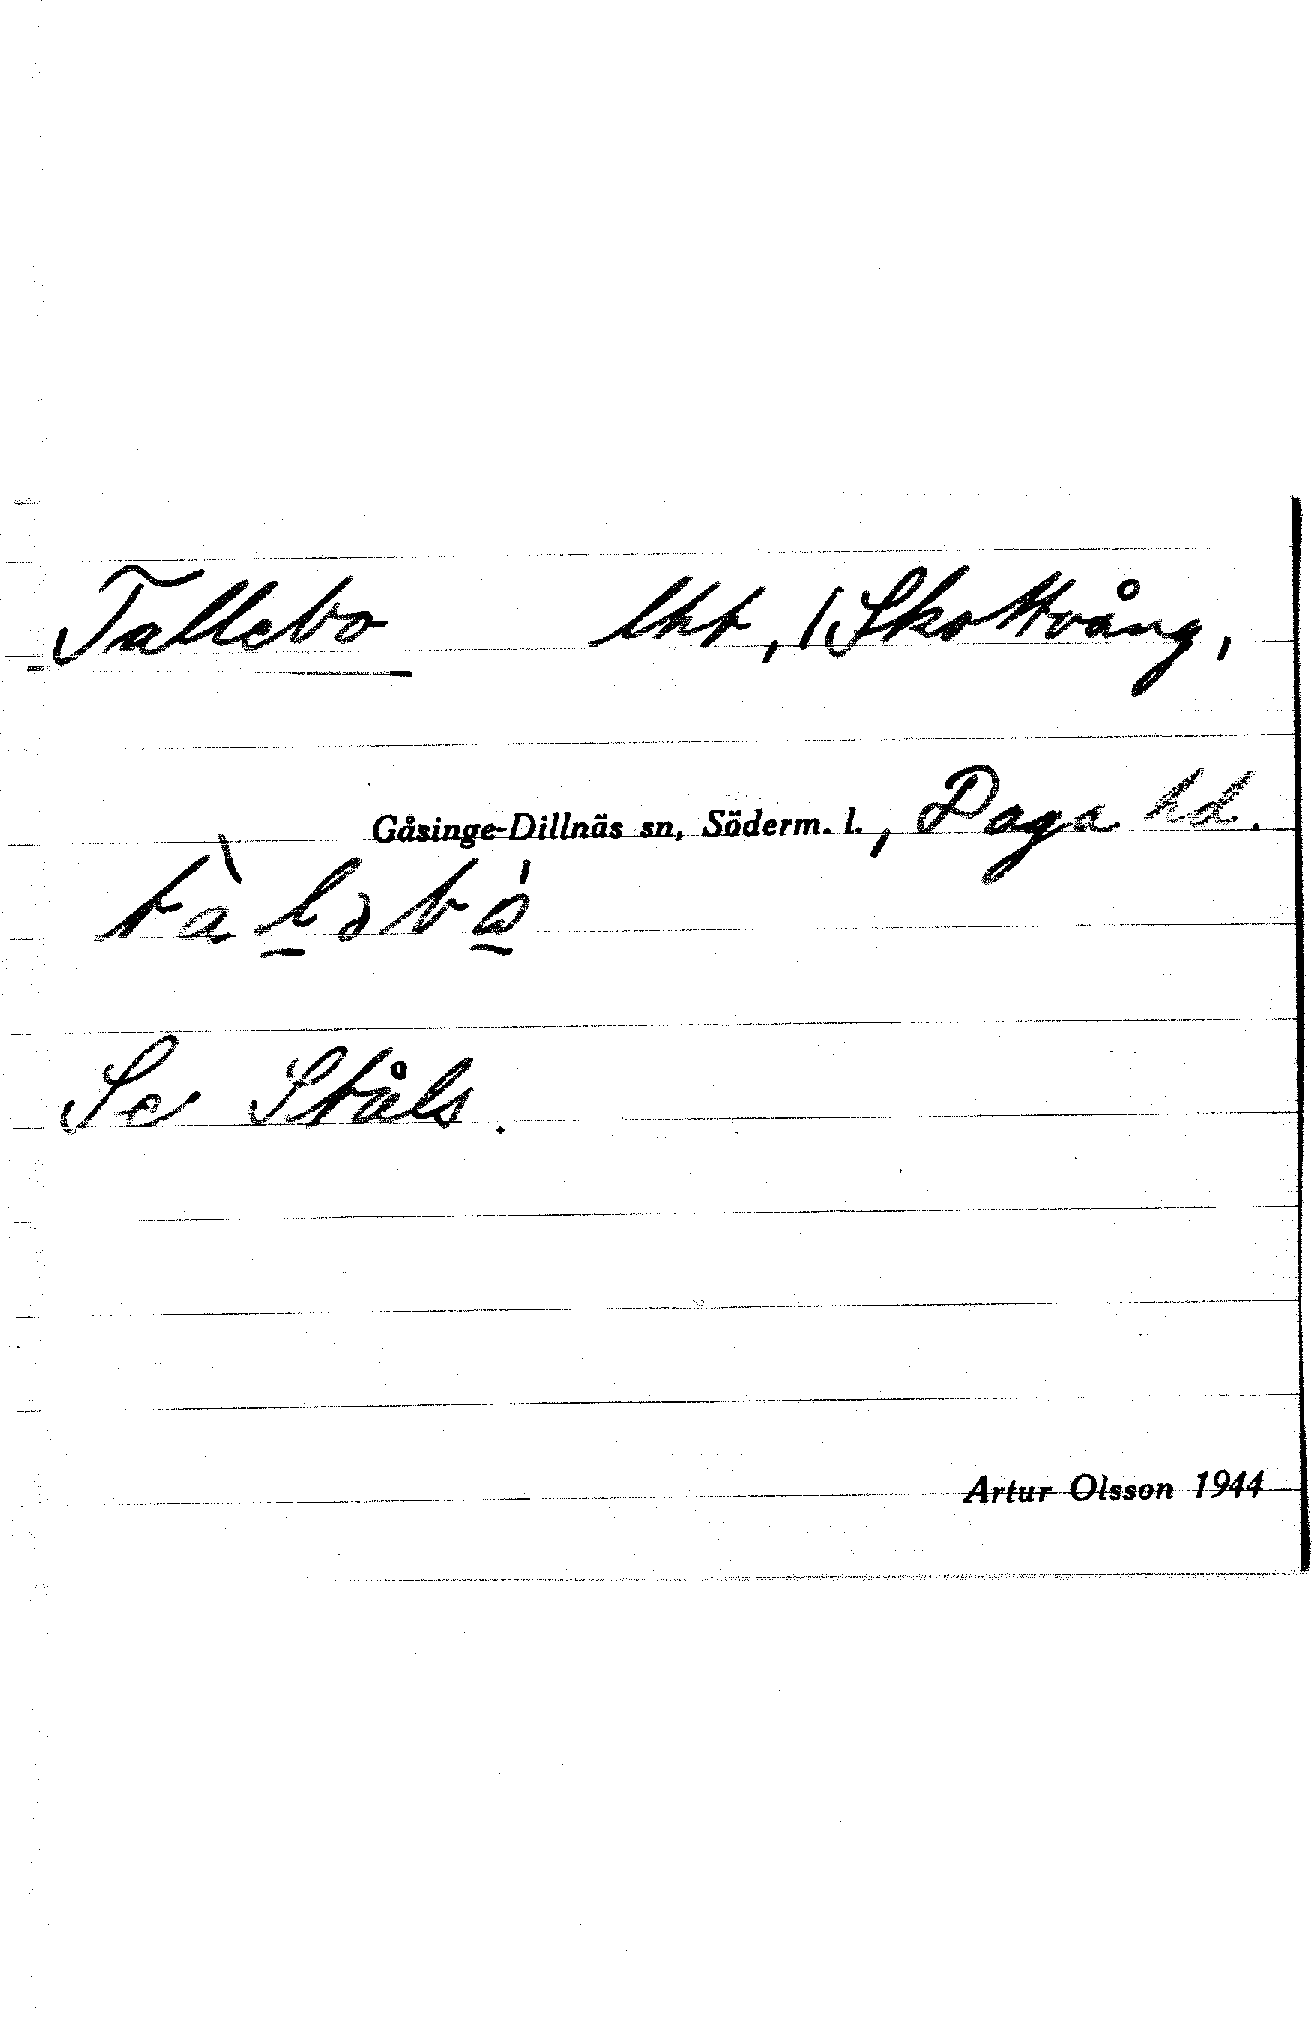 Tallebo lht, /Skottvång,
Gåsinge-Dillnäs sn, Söderm. l., Daga hd.
tàl̲əbo̲̍
Se Ståls.
Artur Olsson 1944